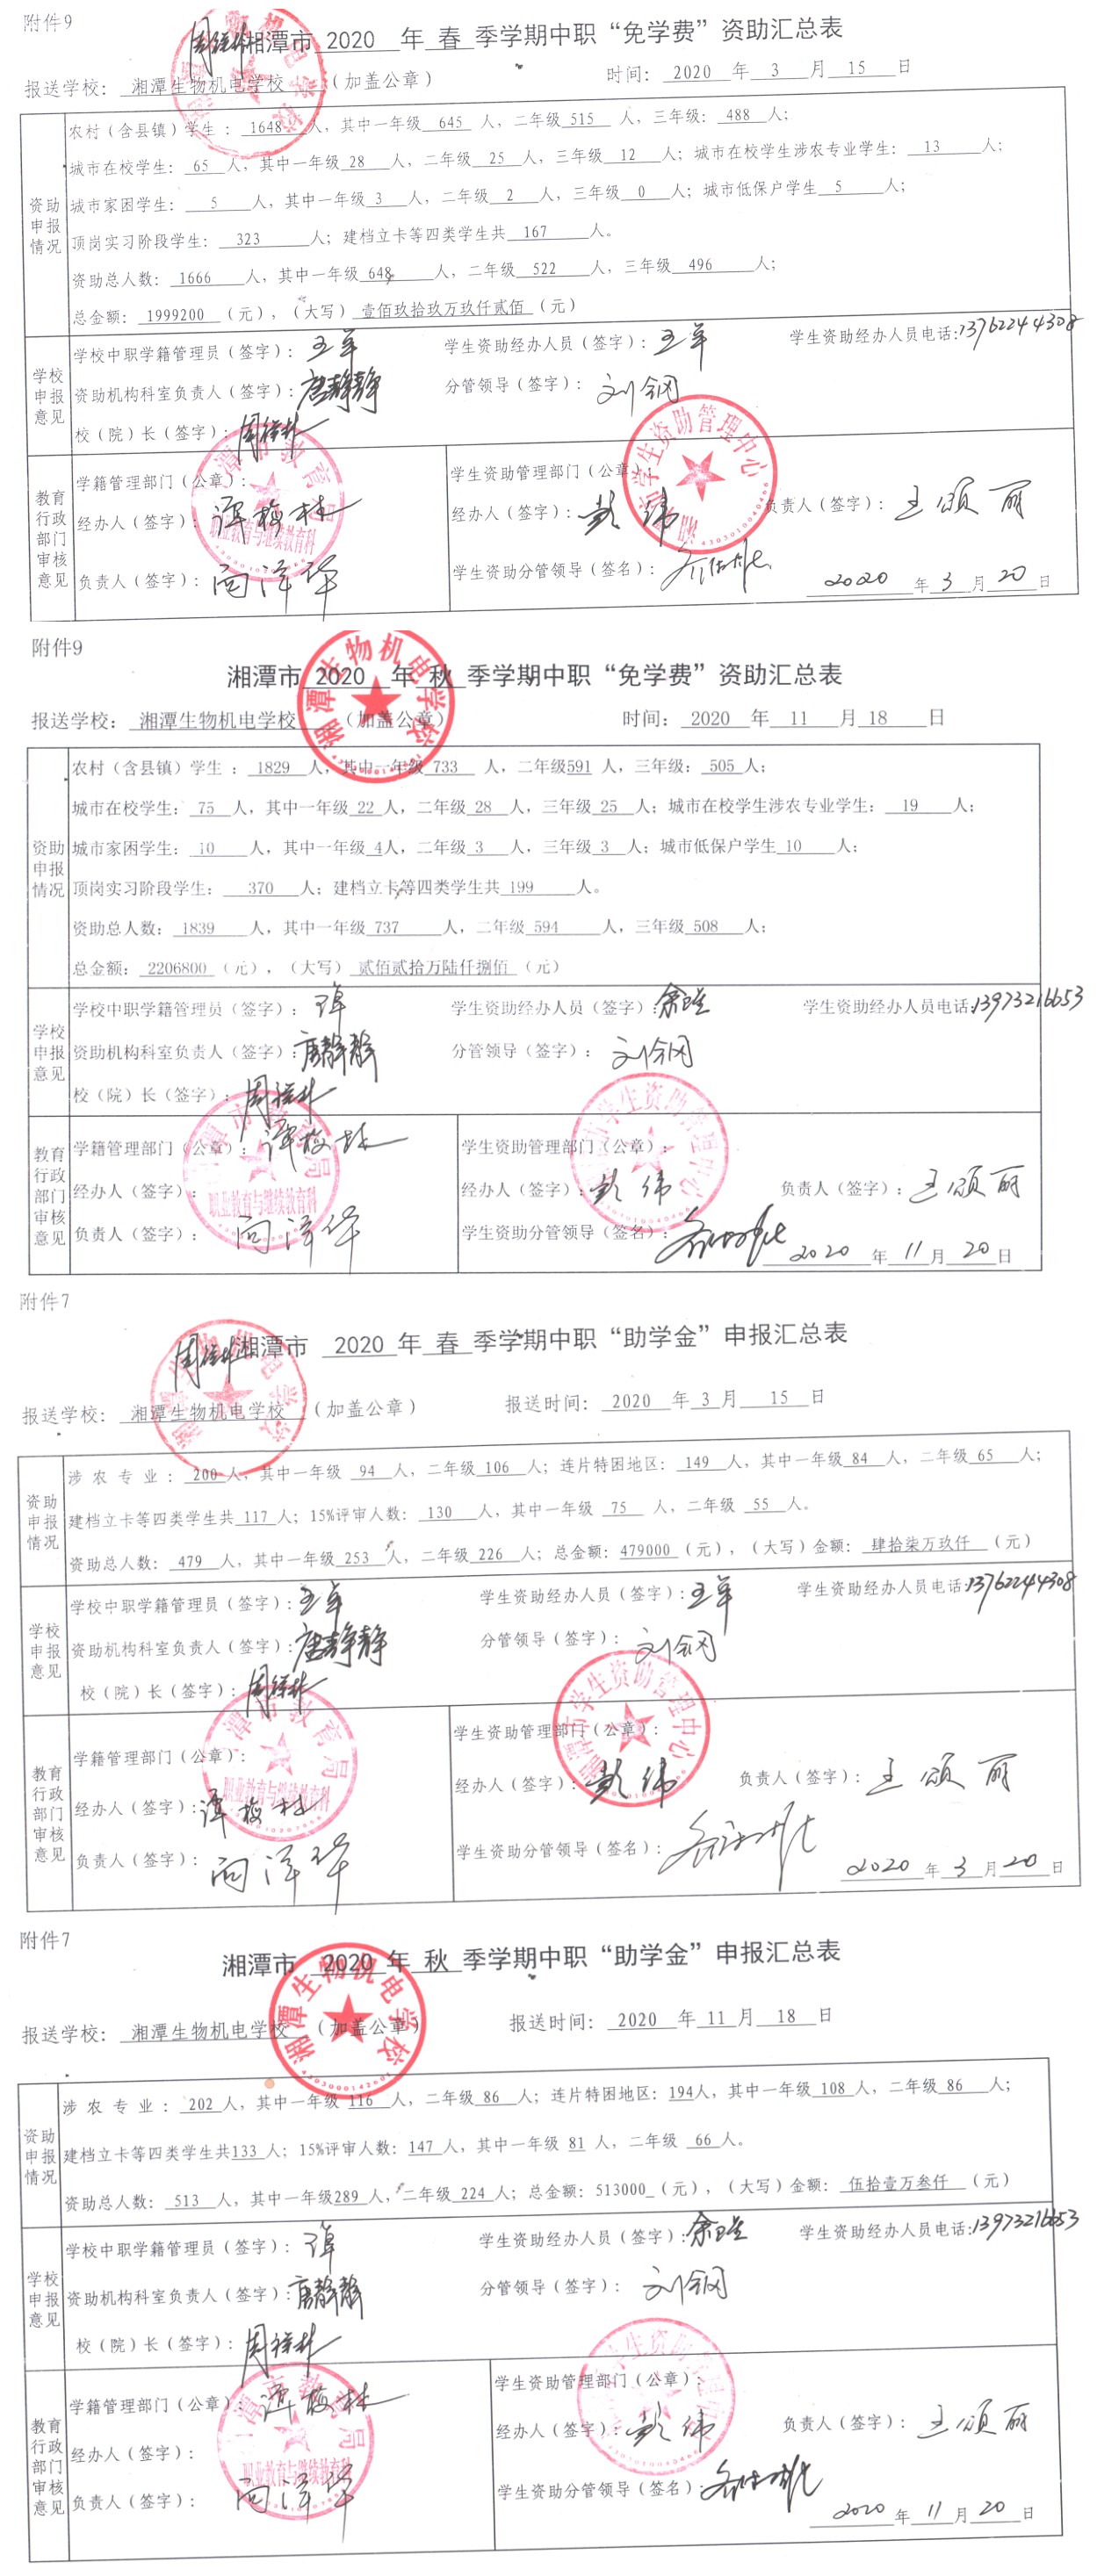 附件9
湘潭市 2020 年 春 季学期中职“免学费”资助汇总表
报送学校： 湘潭生物机电学校 （加盖公章） 时间： 2020 年 3 月 15 日
农村（含县镇）学生 ： 1648 人，其中一年级 645 人，二年级 515 人，三年级： 488 人；
城市在校学生： 65 人，其中一年级 28 人，二年级 25 人，三年级 12 人；城市在校学生涉农专业学生： 13 人；
资助申报情况
城市家困学生： 5 人，其中一年级 3 人，二年级 2 人，三年级 0 人；城市低保户学生 5 人；
顶岗实习阶段学生： 323 人；建档立卡等四类学生共 167 人。
资助总人数： 1666 人，其中一年级 648 人，二年级 522 人，三年级 496 人；
总金额： 1999200 （元），（大写） 壹佰玖拾玖万玖仟贰佰 （元）
学校申报意见
学校中职学籍管理员（签字）： 学生资助经办人员（签字）： 学生资助经办人员电话：13762244308
资助机构科室负责人（签字）：唐静静 分管领导（签字）：
校（院）长（签字）：
教育行政部门审核意见
学籍管理部门（公章）： 学生资助管理部门（公章）：
经办人（签字）：谭梅林 经办人（签字）：彭伟 负责人（签字）：王颂丽
负责人（签字）：向泽华 学生资助分管领导（签名）：
2020 年 3 月 20 日
附件9
湘潭市 2020 年 秋 季学期中职“免学费”资助汇总表
报送学校： 湘潭生物机电学校 （加盖公章） 时间： 2020 年 11 月 18 日
农村（含县镇）学生 ： 1829 人，其中一年级 733 人，二年级 591 人，三年级： 505 人；
城市在校学生： 75 人，其中一年级 22 人，二年级 28 人，三年级 25 人；城市在校学生涉农专业学生： 19 人；
资助申报情况
城市家困学生： 10 人，其中一年级 4 人，二年级 3 人，三年级 3 人；城市低保户学生 10 人；
顶岗实习阶段学生： 370 人；建档立卡等四类学生共 199 人。
资助总人数： 1839 人，其中一年级 737 人，二年级 594 人，三年级 508 人；
总金额： 2206800 （元），（大写） 贰佰贰拾万陆仟捌佰 （元）
学校申报意见
学校中职学籍管理员（签字）： 学生资助经办人员（签字）： 学生资助经办人员电话：13973216653
资助机构科室负责人（签字）：唐静静 分管领导（签字）：
校（院）长（签字）：
教育行政部门审核意见
学籍管理部门（公章）：谭梅林 学生资助管理部门（公章）：
经办人（签字）： 经办人（签字）：彭伟 负责人（签字）：王颂丽
负责人（签字）：向泽华 学生资助分管领导（签名）：
2020 年 11 月 20 日
附件7
湘潭市 2020 年 春 季学期中职“助学金”申报汇总表
报送学校： 湘潭生物机电学校 （加盖公章） 报送时间： 2020 年 3 月 15 日
涉 农 专 业 ： 200 人，其中一年级 94 人，二年级 106 人；连片特困地区： 149 人，其中一年级 84 人，二年级 65 人；
资助申报情况
建档立卡等四类学生共 117 人；15%评审人数： 130 人，其中一年级 75 人，二年级 55 人。
资助总人数： 479 人，其中一年级 253 人，二年级 226 人；总金额：479000 （元），（大写）金额： 肆拾柒万玖仟 （元）
学校申报意见
学校中职学籍管理员（签字）： 学生资助经办人员（签字）： 学生资助经办人员电话：13762244308
资助机构科室负责人（签字）：唐静静 分管领导（签字）：
校（院）长（签字）：
教育行政部门审核意见
学籍管理部门（公章）： 学生资助管理部门（公章）：
经办人（签字）：谭梅林 经办人（签字）：彭伟 负责人（签字）：王颂丽
负责人（签字）：向泽华 学生资助分管领导（签名）：
2020 年 3 月 20 日
附件7
湘潭市 2020 年 秋 季学期中职“助学金”申报汇总表
报送学校： 湘潭生物机电学校 （加盖公章） 报送时间： 2020 年 11 月 18 日
涉 农 专 业 ： 202 人，其中一年级 116 人，二年级 86 人；连片特困地区：194人，其中一年级 108 人，二年级 86 人；
资助申报情况
建档立卡等四类学生共133 人；15%评审人数： 147 人，其中一年级 81 人，二年级 66 人。
资助总人数： 513 人，其中一年级289 人，二年级 224 人；总金额：513000 （元），（大写）金额： 伍拾壹万叁仟 （元）
学校申报意见
学校中职学籍管理员（签字）： 学生资助经办人员（签字）： 学生资助经办人员电话：13973216653
资助机构科室负责人（签字）：唐静静 分管领导（签字）：
校（院）长（签字）：
教育行政部门审核意见
学籍管理部门（公章）：谭梅林 学生资助管理部门（公章）：
经办人（签字）： 经办人（签字）：彭伟 负责人（签字）：王颂丽
负责人（签字）：向泽华 学生资助分管领导（签名）：
2020 年 11 月 20 日